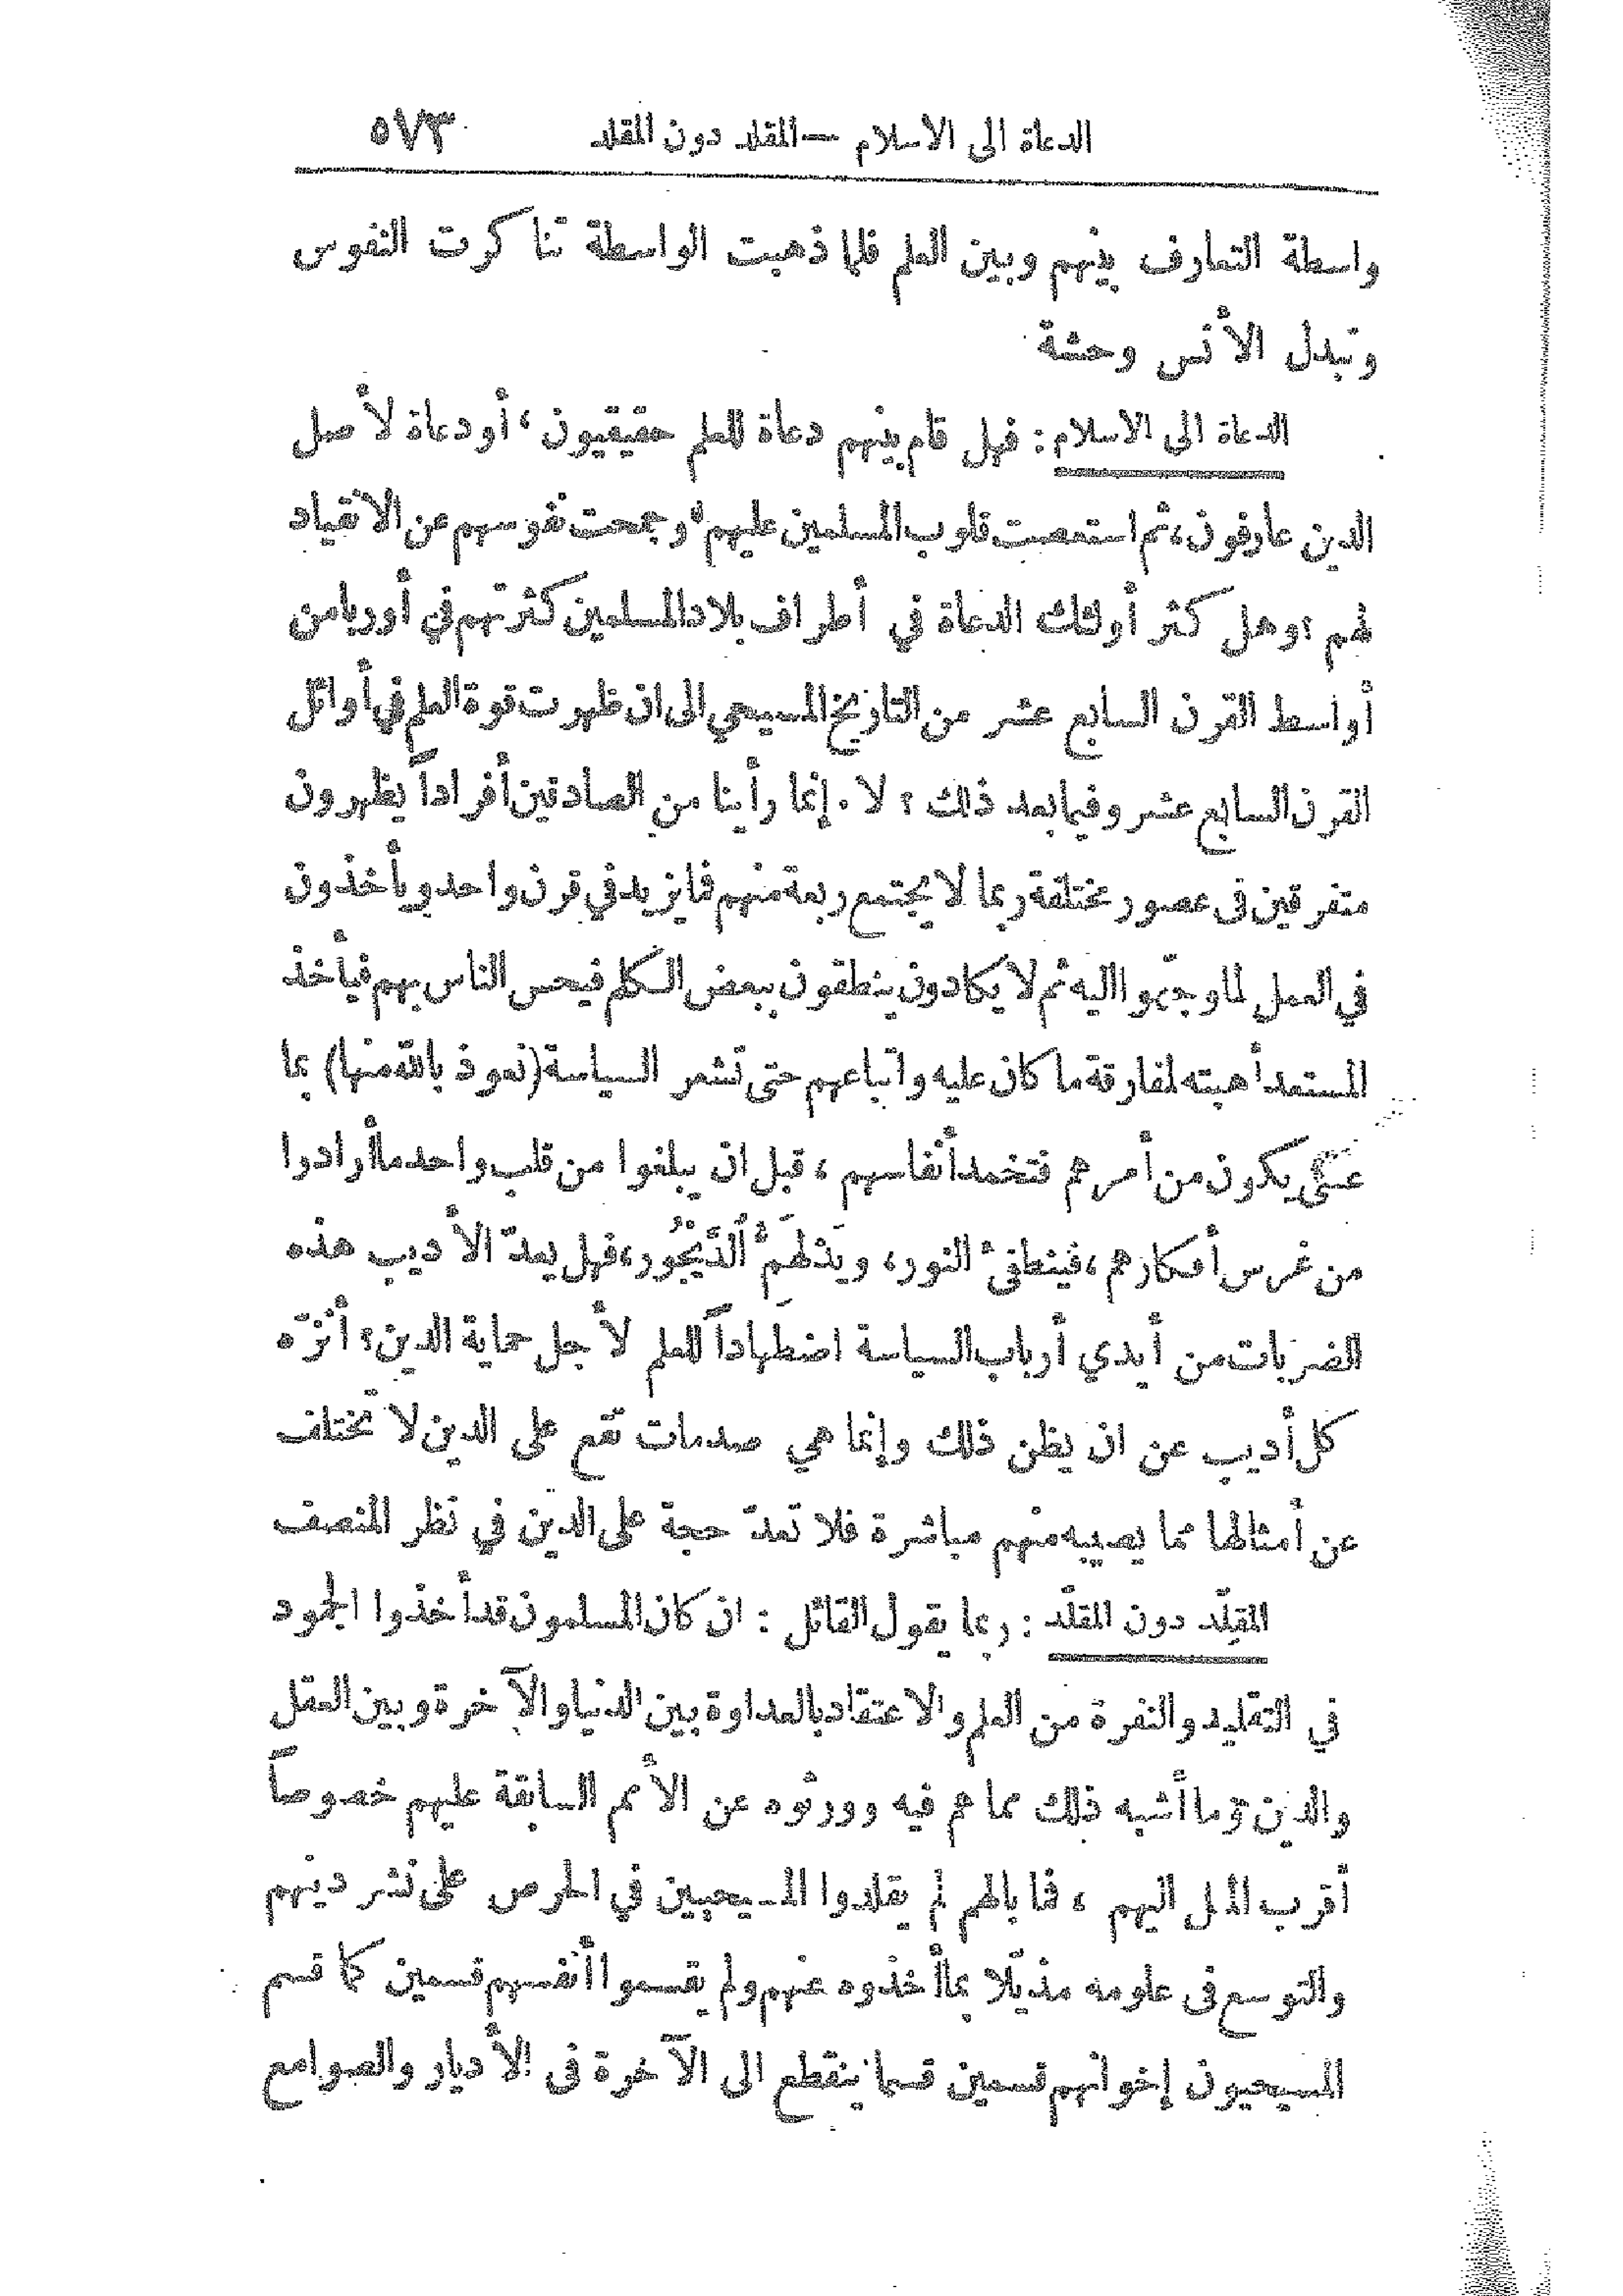 الدعاة الى الاسلام — المقلد دون المقلد ٥٧٣
واسطة التعارف بينهم وبين العلم فلما ذهبت الواسطة تناكرت النفوس
وتبدل الأنس وحشة
الدعاة الى الاسلام : فهل قام بينهم دعاة للعلم حقيقيون ، أو دعاة لأصل
الدين عارفون ، ثم استعصت قلوب المسلمين عليهم ؛ وجمحت نفوسهم عن الانقياد
لهم ؟ وهل كثر أولئك الدعاة في أطراف بلاد المسلمين كثرتهم في أوربا من
أواسط القرن السابع عشر من التاريخ المسيحي الى ان ظهرت قوة العلم في أوائل
القرن السابع عشر وفيما بعد ذلك ؟ لا . إنما رأينا من الصادقين أفراداً يظهرون
متفرقين فى عصور مختلفة ربما لا يجتمع ربعة منهم فما يزيد في قرن واحد ويأخذون
في العمل لما وجّهوا اليه ثم لا يكادون ينطقون ببعض الكلم فيحس الناس بهم فيأخذ
المستعد أهبته لمفارقة ما كان عليه واتباعهم حتى تشعر السياسة (نعوذ بالله منها) بما
عسى يكون من أمرهم فتخمد أنفاسهم ، قبل ان يبلغوا من قلب واحد ما أرادوا
من غرس أفكارهم ، فينطفئ النور ، ويَدْلَهِمُّ الدَّيْجُور ، فهل يعدّ الأديب هذه
الضربات من أيدي أرباب السياسة اضطهاداً للعلم لأجل حماية الدين ؟ أنزّه
كل أديب عن ان يظن ذلك وإنما هي صدمات تقع على الدين لا تختلف
عن أمثالها مما يصيبه منهم مباشرة فلا تعدّ حجة على الدين في نظر المنصف
المقلِّد دون المقلَّد : ربما يقول القائل : ان كان المسلمون قد أخذوا الجمود
في التقليد والنفرة من العلم والاعتقاد بالعداوة بين الدنيا والآخرة وبين العقل
والدين وما أشبه ذلك مما هم فيه وورثوه عن الأمم السابقة عليهم خصوصاً
أقرب الملل اليهم ، فما بالهم لم يقلدوا المسيحيين في الحرص على نشر دينهم
والتوسع فى علومه مذيّلا بما أخذوه عنهم ولم يقسموا أنفسهم قسمين كما قسم
المسيحيون إخوانهم قسمين قسما ينقطع الى الآخرة فى الأديار والصوامع